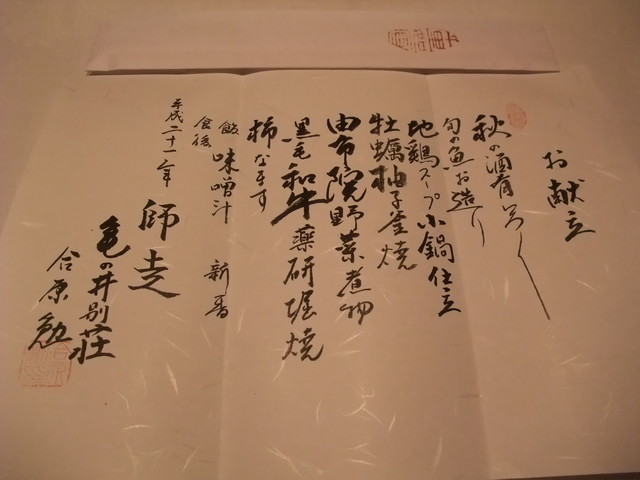 お献立
秋の酒肴いろ〱
旬の魚お造り
地鶏スープ小鍋仕立
牡蠣柚子釜焼
由布院野菜煮物
黒毛和牛薬研堀焼
柿なます
飯 味噌汁 新香
食後
平成二十一年
師走
亀の井別荘
合原勉